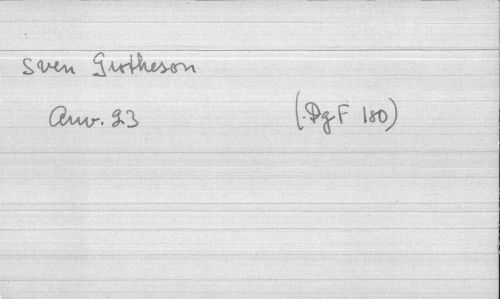 Sven Grotheson
Anv. 23 (DgF 180)